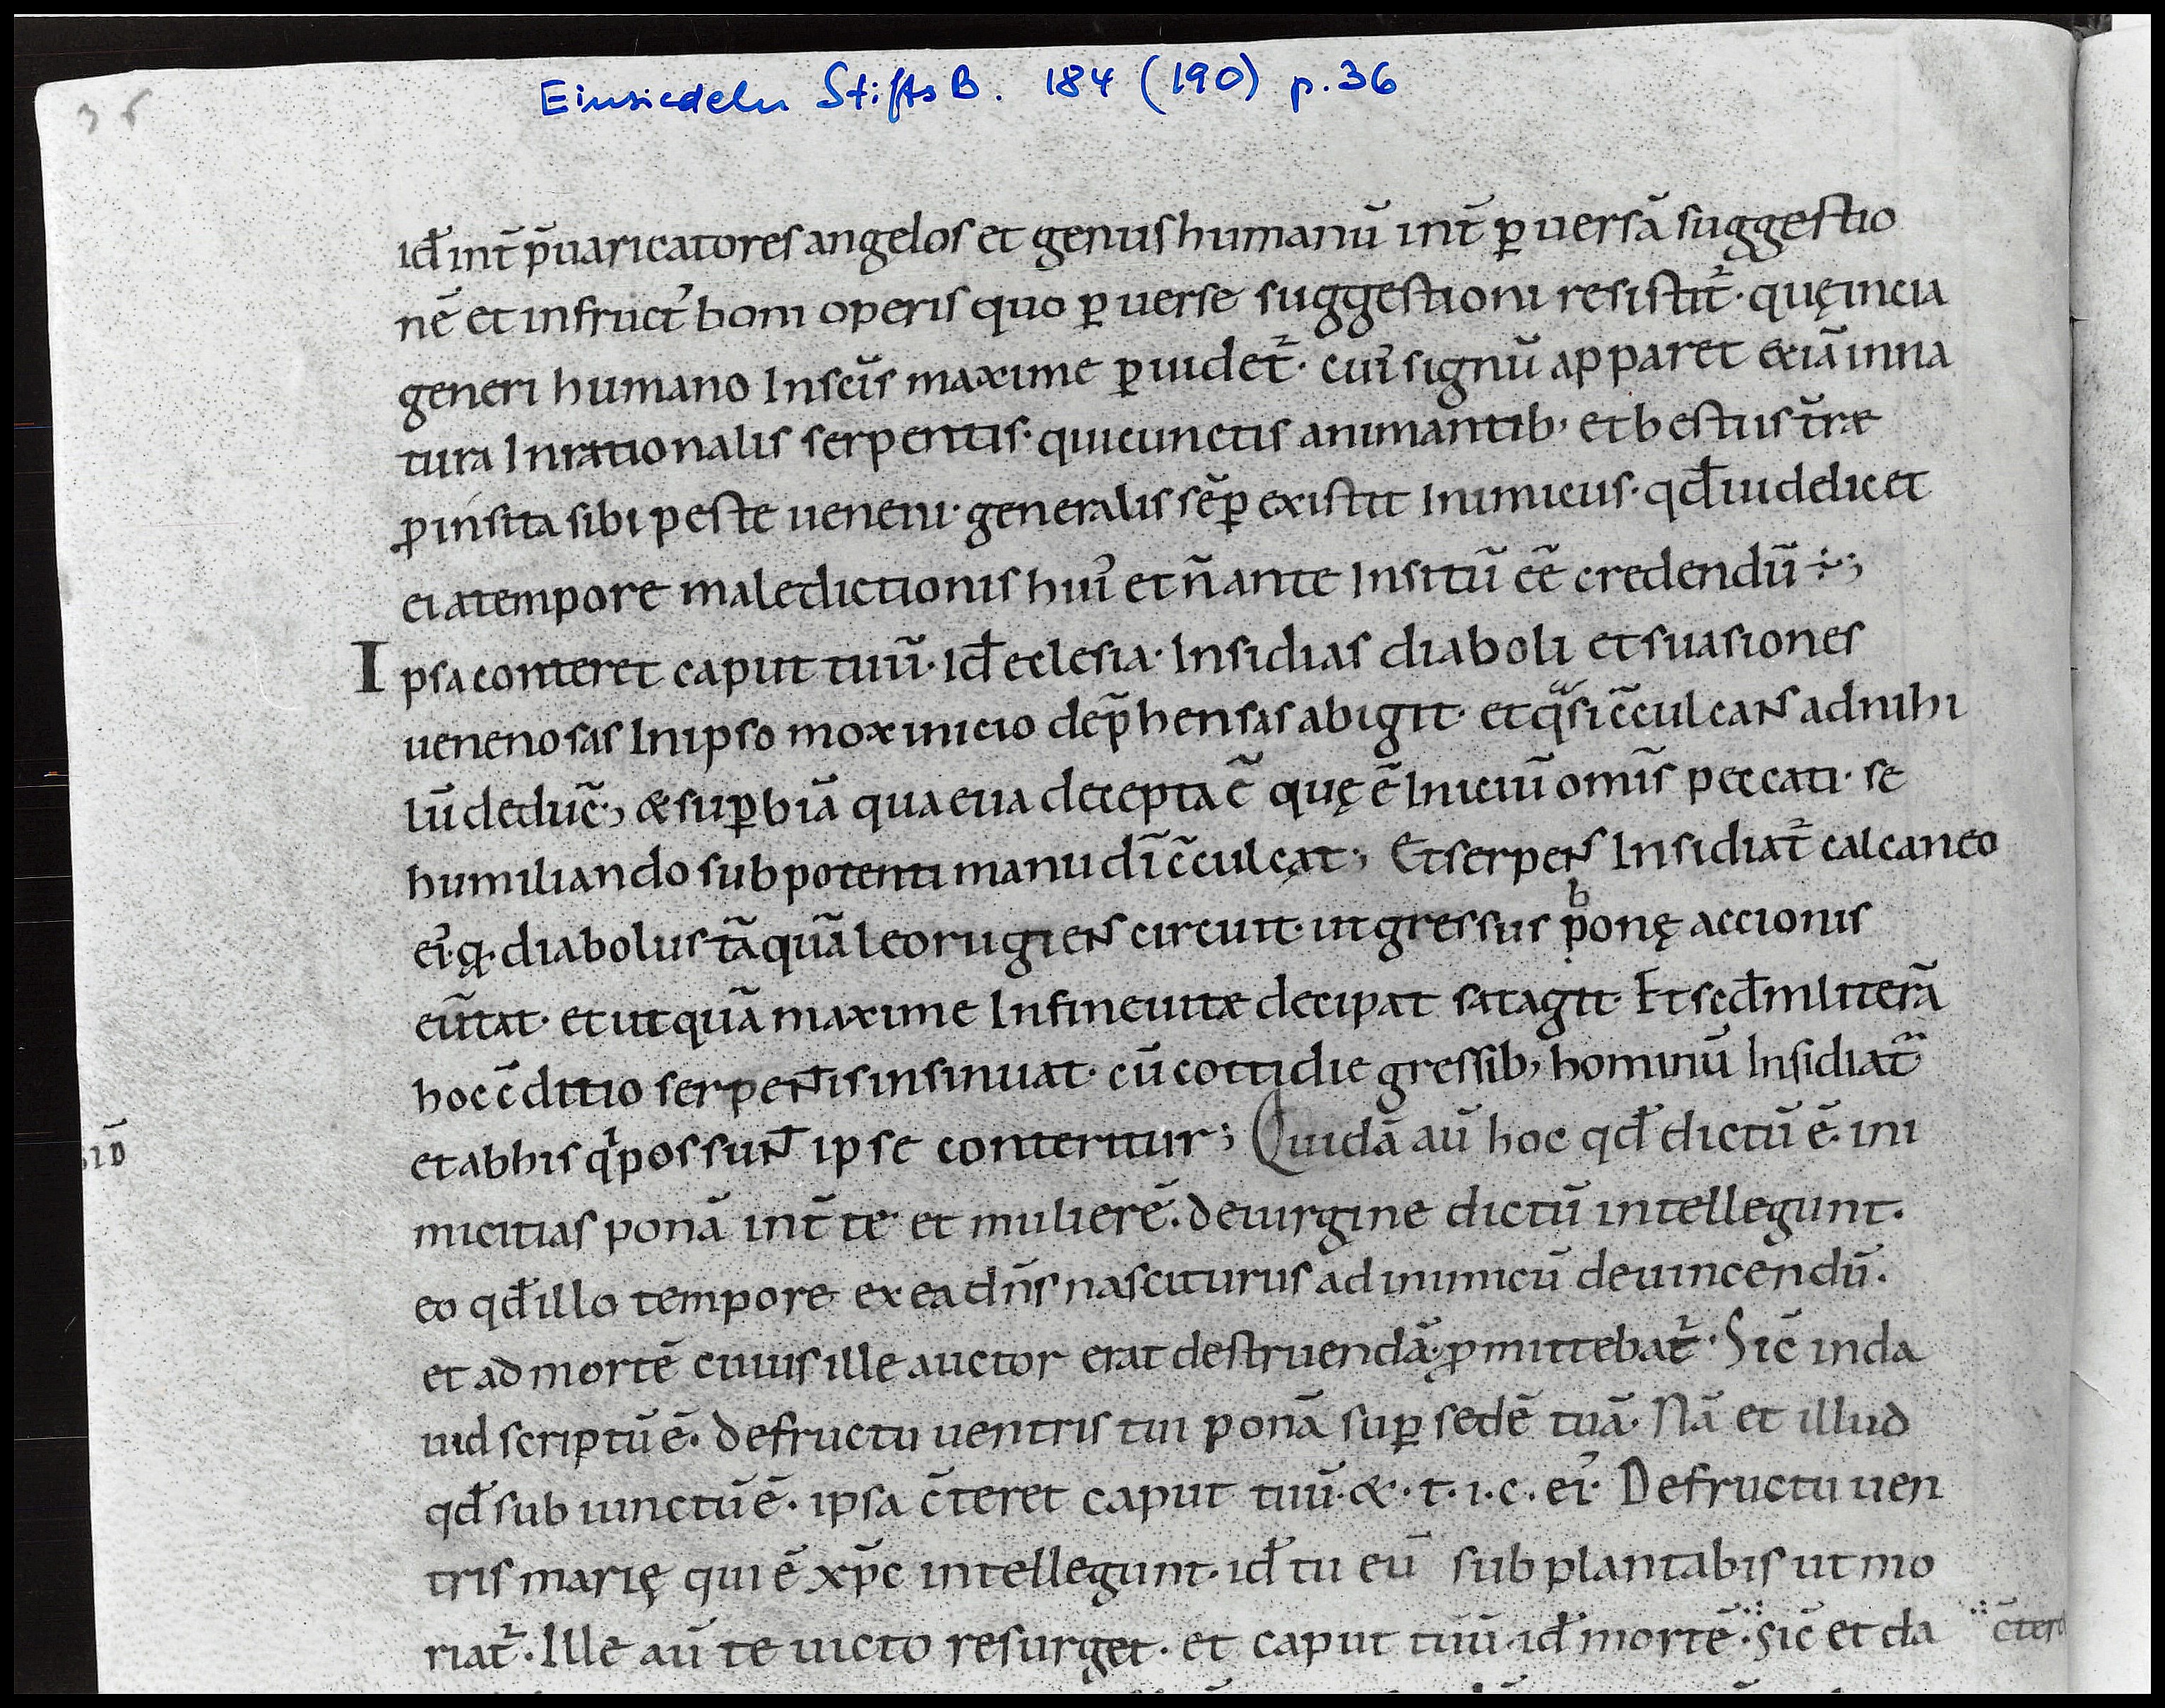 36
Einsiedeln StiftsB. 184 (190) p. 36
id̄ int̄ p̄uaricatores angelos et genus humanū int̄ ꝑuersā suggestio
nē et in fruct᾽ boni operis quo ꝑuerse suggestioni resistit᷑· quę incia
generi humano Inscīs maxime ꝑuidet᷑· cui᾽ signū apparet etiā in na
tura Inrationalis serpentis· qui cunctis animantib; et bestiis t̄ræ
ꝓ insita sibi peste ueneni· generalis sēꝑ existit Inimicus· qd̄ uidelicet
ei a tempore maledictionis hui᾽ et n̄ ante Insitū eē credendū ÷;
Ipsa conteret caput tuū· Id̄ eclesia· Insidias diaboli et suasiones
uenenosas In ipso mox inicio dep̄hensas abigit· et qͣsi c̄culcans ad nihi
lū deduc̄; & suꝑbiā qua eua decepta ē quę ē Iniciū om̄is peccati· se
humiliando sub potenti manu dī c̄culcat; Et serpens Insidiat᷑ calcaneo
ei᾽· q· diabolus tāquā leo rugiens circuit· ut gressus ponę accionis
b
eūtat· et ut quā maxime In fine uitæ decipat satagit· Et secd̄m litterā
hoc c̄ditio serpentis insinuat· cū cottidie gressib; hominū Insidiat᷑
et ab his qͥ possunt ipse conteritur; Quidā aū hoc qd̄ dictū ē· ini
micitias ponā int̄ te et mulierē· de uirgine dictū intellegunt·
eo qd̄ illo tempore ex ea dn̄s nasciturus ad inimicū deuincendū·
et ad mortē cuius ille auctor erat destruendā· ꝓmittebat᷑· Sic̄ in da
uid scriptū ē· de fructu uentris tui ponā suꝑ sedē tuā· Nā et illud
qd̄ sub iunctū ē· ipsa c̄teret caput tuū· &· t· i· c· ei᾽· De fructu uen
tris marię qui ē xp̄c intellegunt· id̄ tu eū sub plantabis ut mo
riat᷑· Ille aū te uicto resurget· et caput tuū· id̄ mortē· Sic̄ et da
c̄ter